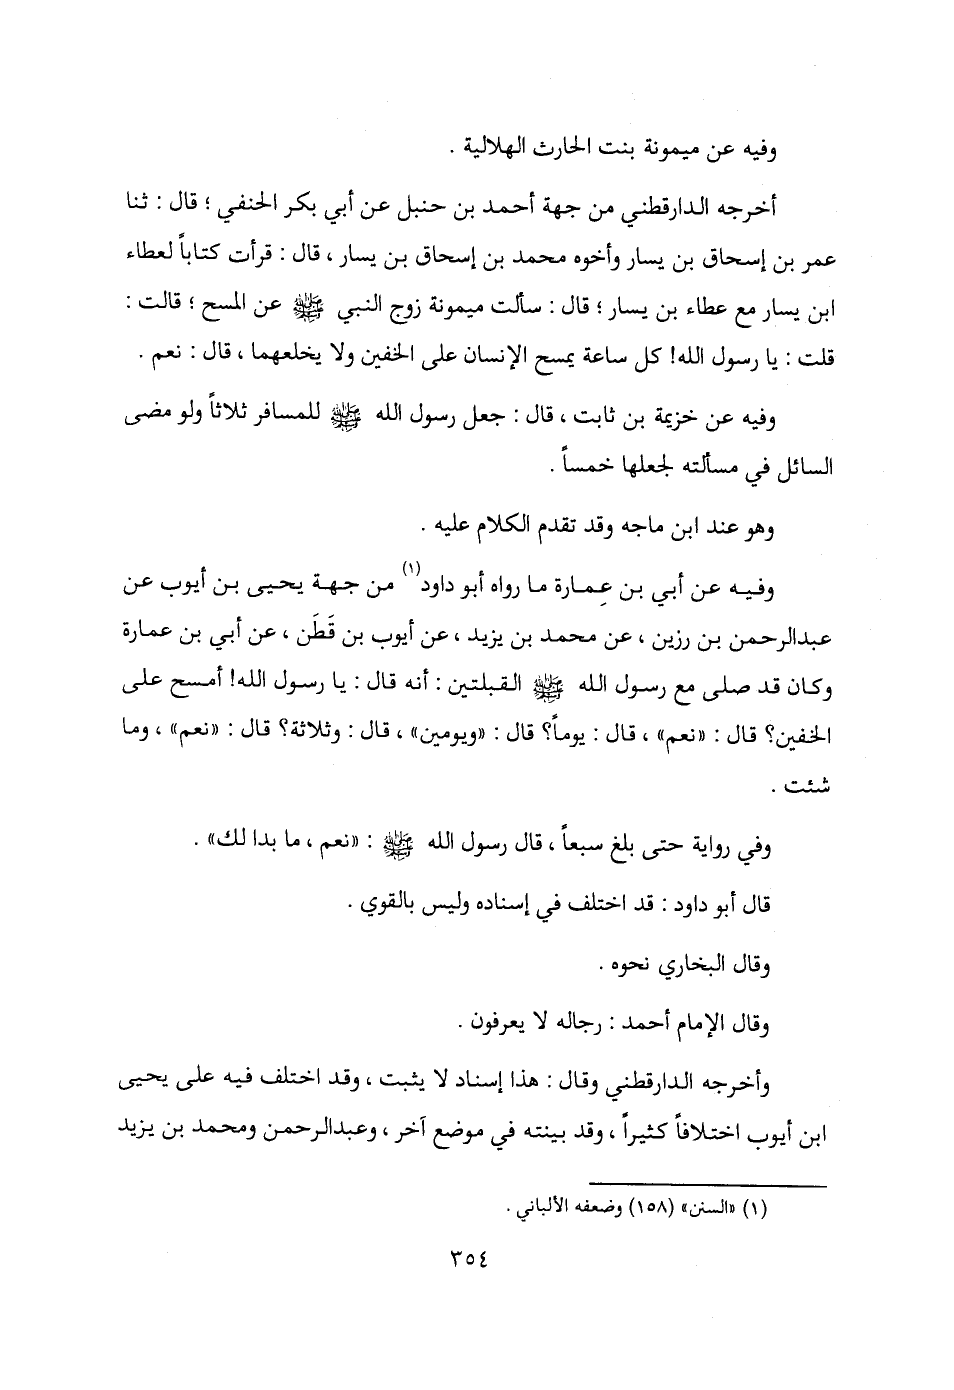 وفيه عن ميمونة بنت الحارث الهلالية .
أخرجه الدارقطني من جهة أحمد بن حنبل عن أبي بكر الحنفي ؛ قال : ثنا
عمر بن إسحاق بن يسار وأخوه محمد بن إسحاق بن يسار ، قال : قرأت كتاباً لعطاء
ابن يسار مع عطاء بن يسار ؛ قال : سألت ميمونة زوج النبي ﷺ عن المسح ؛ قالت :
قلت : يا رسول الله! كل ساعة يمسح الإنسان على الخفين ولا يخلعهما ، قال : نعم .
وفيه عن خزيمة بن ثابت ، قال : جعل رسول الله ﷺ للمسافر ثلاثاً ولو مضى
السائل في مسألته لجعلها خمساً .
وهو عند ابن ماجه وقد تقدم الكلام عليه .
وفيه عن أبي بن عِمارة ما رواه أبو داود(١) من جهة يحيى بن أيوب عن
عبدالرحمن بن رزين ، عن محمد بن يزيد ، عن أيوب بن قَطَن ، عن أبي بن عمارة
وكان قد صلى مع رسول الله ﷺ القبلتين : أنه قال : يا رسول الله! أمسح على
الخفين؟ قال : «نعم» ، قال : يوماً؟ قال : «ويومين» ، قال : وثلاثة؟ قال : «نعم» ، وما
شئت .
وفي رواية حتى بلغ سبعاً ، قال رسول الله ﷺ : «نعم ، ما بدا لك» .
قال أبو داود : قد اختلف في إسناده وليس بالقوي .
وقال البخاري نحوه .
وقال الإمام أحمد : رجاله لا يعرفون .
وأخرجه الدارقطني وقال : هذا إسناد لا يثبت ، وقد اختلف فيه على يحيى
ابن أيوب اختلافاً كثيراً ، وقد بينته في موضع آخر ، وعبدالرحمن ومحمد بن يزيد
(١) «السنن» (١٥٨) وضعفه الألباني .
٣٥٤